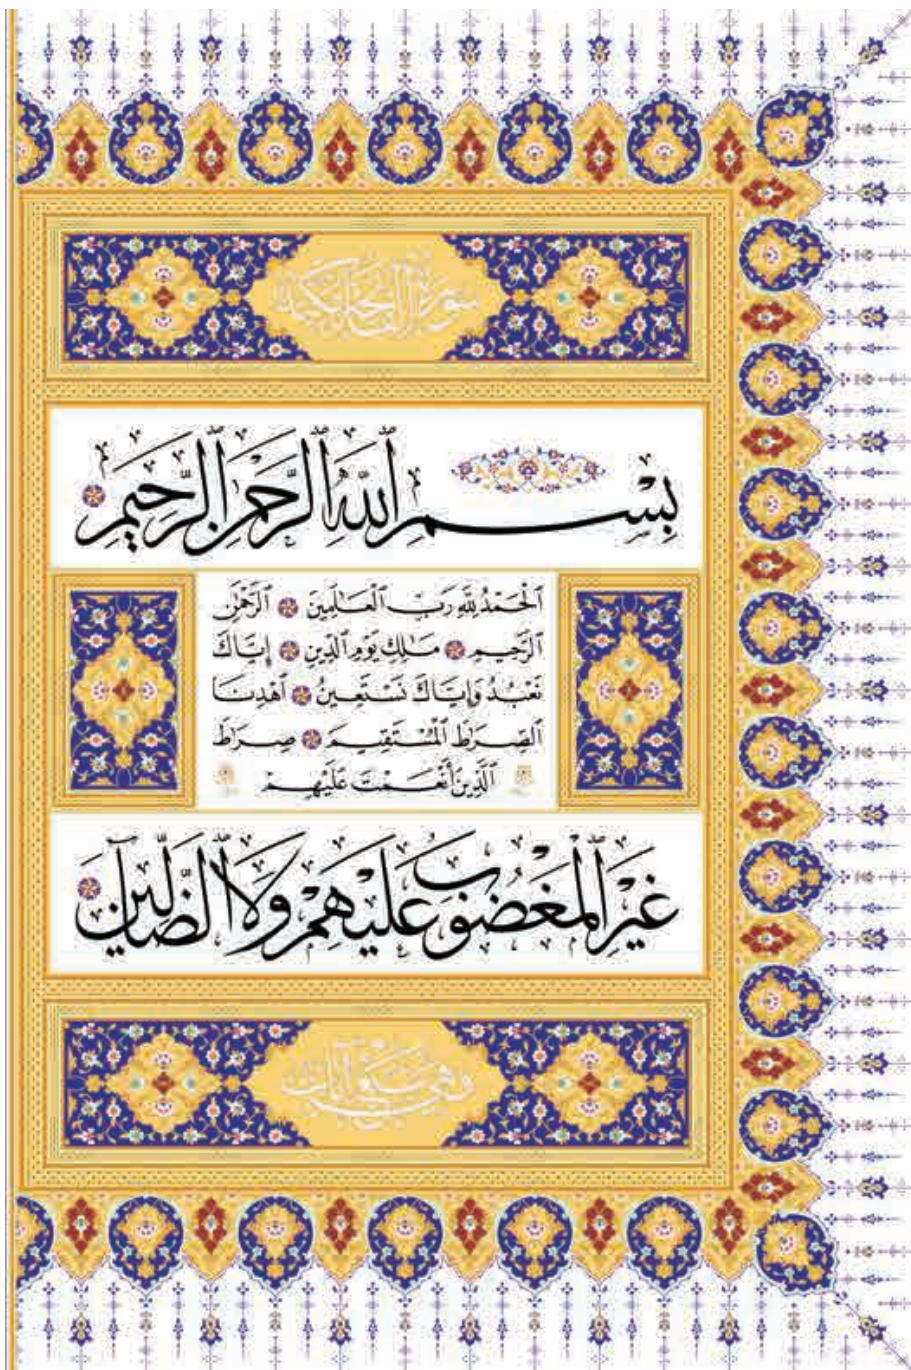 سورة الفاتحة مكية
بِسْمِ ٱللَّهِ ٱلرَّحْمَٰنِ ٱلرَّحِيمِ
ٱلْحَمْدُ لِلَّهِ رَبِّ ٱلْعَالَمِينَ ٱلرَّحْمَٰنِ
ٱلرَّحِيمِ مَالِكِ يَوْمِ ٱلدِّينِ إِيَّاكَ
نَعْبُدُ وَإِيَّاكَ نَسْتَعِينُ ٱهْدِنَا
ٱلصِّرَاطَ ٱلْمُسْتَقِيمَ صِرَاطَ
ٱلَّذِينَ أَنْعَمْتَ عَلَيْهِمْ
غَيْرِ ٱلْمَغْضُوبِ عَلَيْهِمْ وَلَا ٱلضَّالِّينَ
وهي سبع آيات